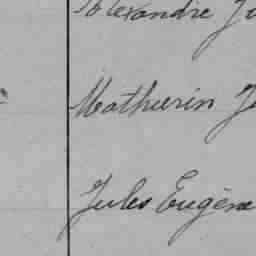 Alexandre
Mathurin
Jules Eugène